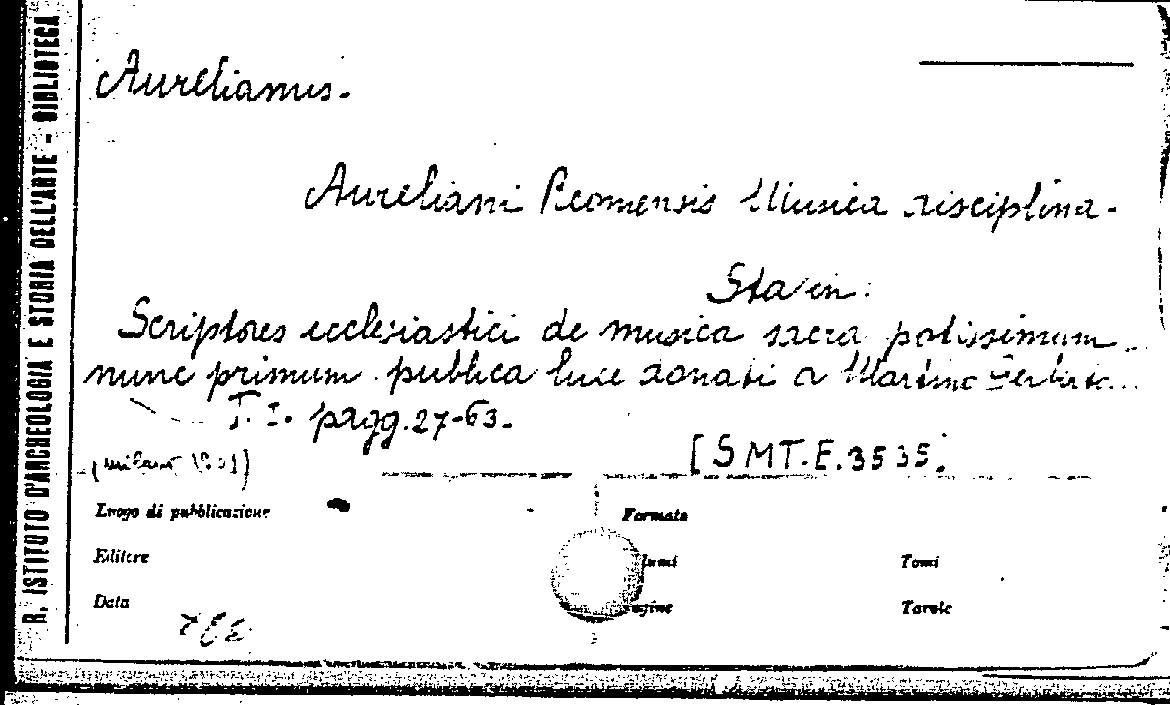 R. ISTITUTO D'ARCHEOLOGIA E STORIA DELL'ARTE - BIBLIOTECA
Aurelianus.
Aureliani Reomensis Musica disciplina.
Sta in:
Scriptores ecclesiastici de musica sacra potissimum
nunc primum publica luce donati a Martino Gerberto...
T. I. pagg. 27-63.
[SMT.E.3535.
Luogo di pubblicazione
Formato
Editore
lumi
Tomi
Data
agine
Tavole